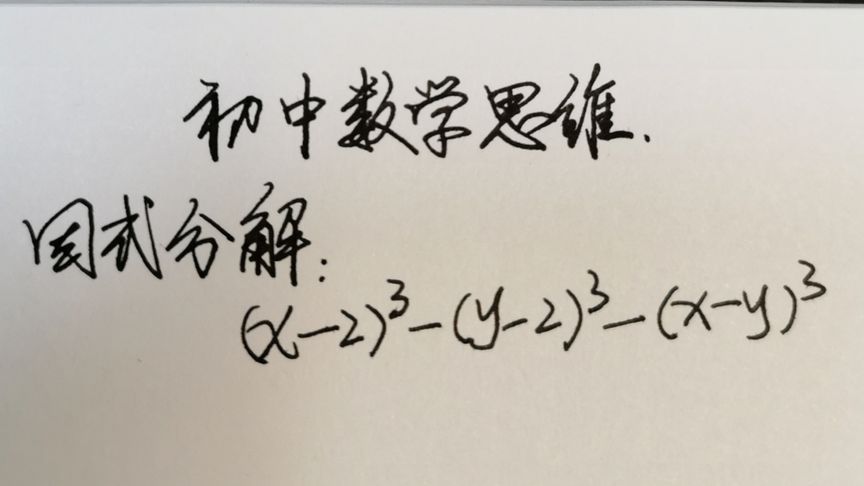 初中数学思维.
因式分解:
(x-2)³-(y-2)³-(x-y)³